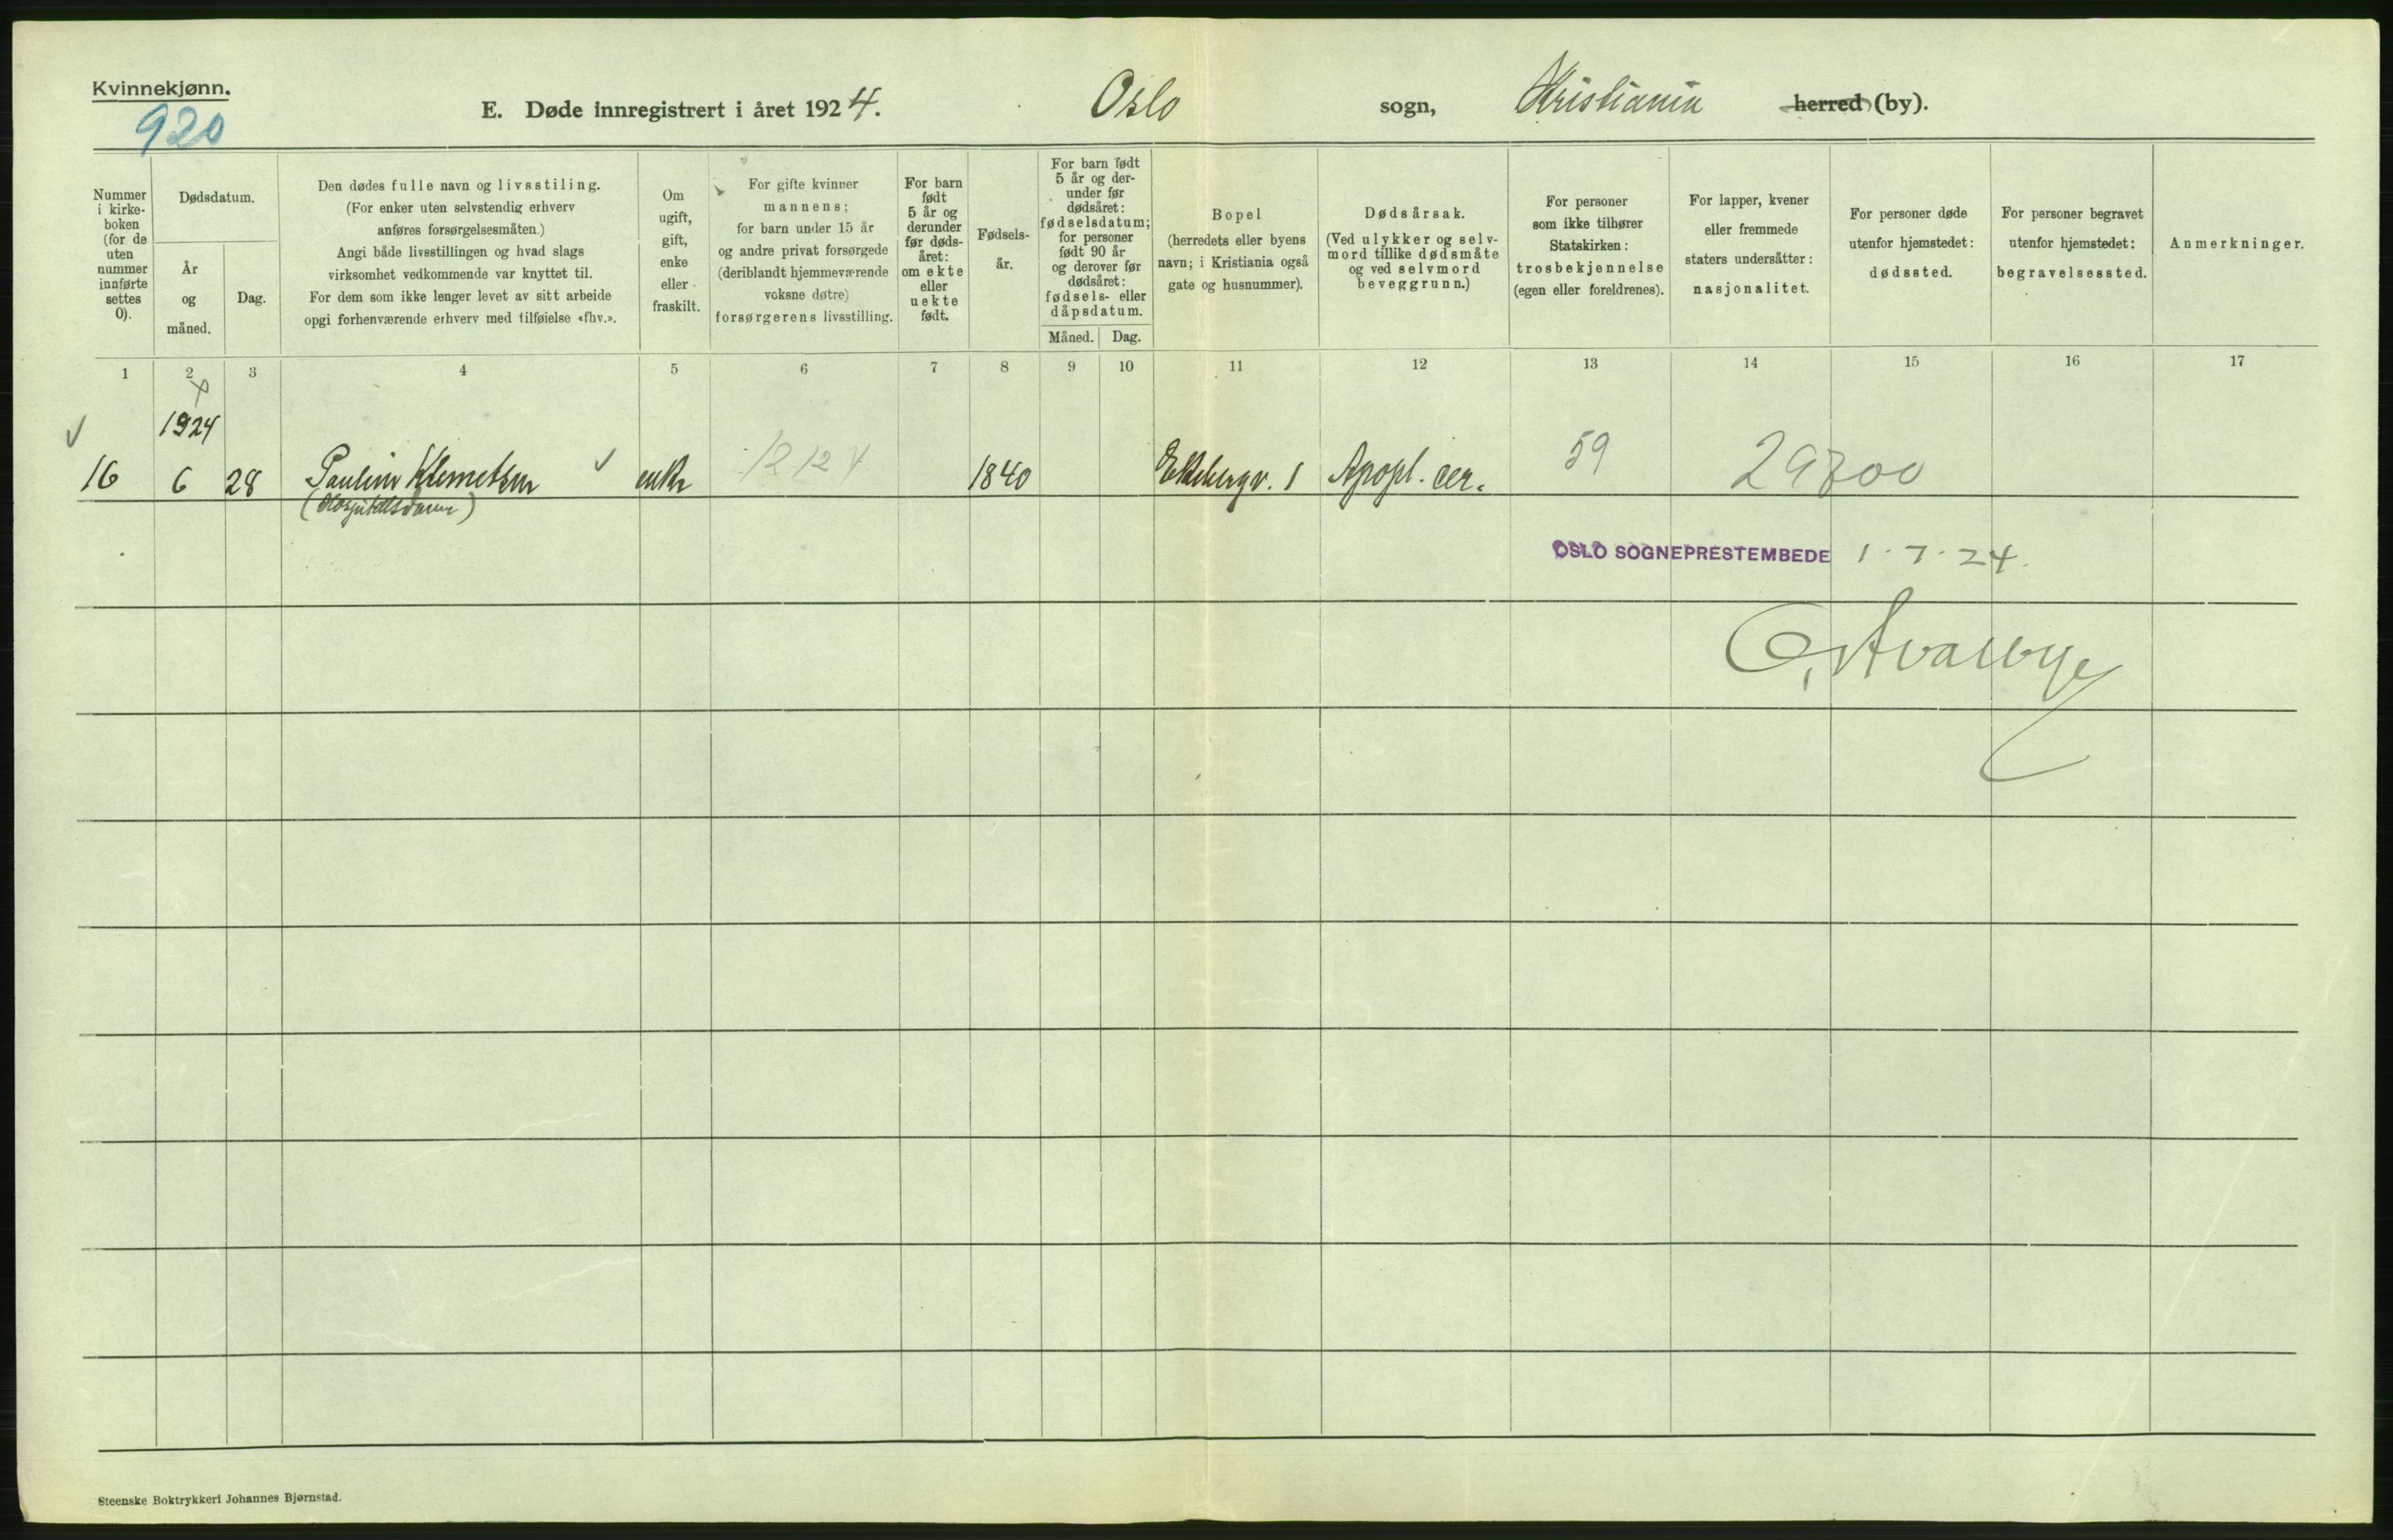 Kvinnekjønn.
920
E. Døde innregistrert i året 1924. Oslo sogn, Kristiania herred (by).
Nummer i kirkeboken (for de uten nummer innførte settes 0).
Dødsdatum.
År og måned.
Dag.
Den dødes fulle navn og livsstiling.
(For enker uten selvstendig erhverv
anføres forsørgelsesmåten.)
Angi både livsstillingen og hvad slags
virksomhet vedkommende var knyttet til.
For dem som ikke lenger levet av sitt arbeide
opgi forhenværende erhverv med tilføielse «fhv.».
Om
ugift,
gift,
enke
eller
fraskilt.
For gifte kvinner
mannens;
for barn under 15 år
og andre privat forsørgede
(deriblandt hjemmeværende
voksne døtre)
forsørgerens livsstilling.
For barn
født
5 år og
derunder
før døds-
året:
om ekte
eller
uekte
født.
Fødsels-
år.
For barn født
5 år og der-
under før
dødsåret:
fødselsdatum;
for personer
født 90 år
og derover før
dødsåret:
fødsels- eller
dåpsdatum.
Måned. Dag.
Bopel
(herredets eller byens
navn; i Kristiania også
gate og husnummer).
Dødsårsak.
(Ved ulykker og selv-
mord tillike dødsmåte
og ved selvmord
beveggrunn.)
For personer
som ikke tilhører
Statskirken:
trosbekjennelse
(egen eller foreldrenes).
For lapper, kvener
eller fremmede
staters undersåtter:
nasjonalitet.
For personer døde
utenfor hjemstedet:
dødssted.
For personer begravet
utenfor hjemstedet:
begravelsessted.
Anmerkninger.
1 2 3 4 5 6 7 8 9 10 11 12 13 14 15 16 17
1924
16 6 28 Pauline Klemetsen enke 1212 1840 Ekebergv. 1 Apopl. cer. 59 29800
OSLO SOGNEPRESTEMBEDE 1-7-24.
Steenske Boktrykkeri Johannes Bjørnstad.